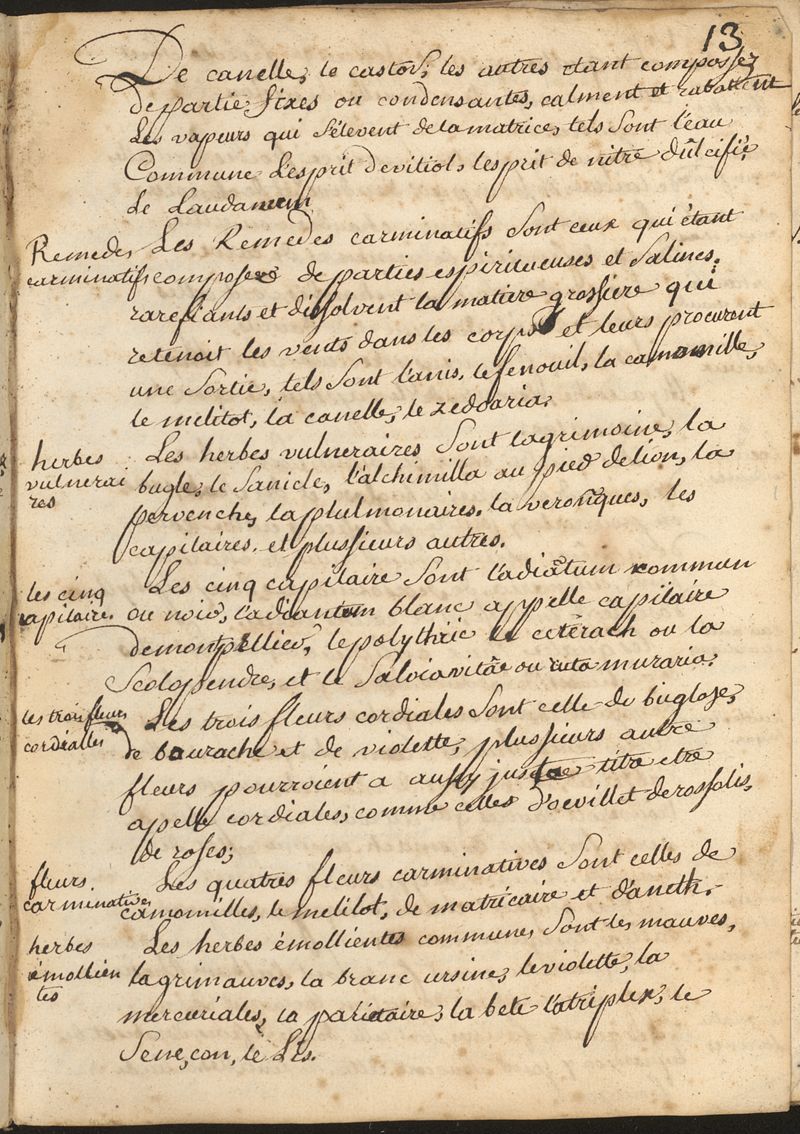 13
De canelle, le castor, les autres etant composséz
de partie fixes ou condensantes, calment et rabattent
Les vapeurs qui s'élevent de la matrice, tels sont l'eau
Commune L'esprit de vitiol, l'esprit de nitre dulcifié,
Le Laudanum
Remedes
carminatifs
Les Remedes carminatifs sont ceux qui étant
composez de parties espiritueuses et salines,
rarefiants et dissolvent la matiere grossiere qui
retenoit les vents dans les corps et leurs procurent
une sortie, tels sont l'anis, le fenouil, la camomille,
le melitot, la canelle, le zedoaria.
herbes
vulnerai
res
Les herbes vulneraires sont lagrimoine, la
bugle, le sanicle, l'alchimilla au pied de lion, la
pervenche, la plulmonaires, la veroniques, les
capitaires, et plussieurs autres.
les cinq
capitaire
Les cinq capitaire sont l'adiatum commun
ou noir, l'adiantum blanc appelle capilaire
de monpellier, le polythric le ceterach ou la
Scolopendre, et le Salviavitae ou ruta muraria.
les trois fleurs
cordealles
Les trois fleurs cordiales sont celle de buglose,
de bourache et de violette, plussieurs autre
fleurs pourroient a aussy juste titre etre
apelle cordiales, comme celles d'oevillet de rossolis,
de roses;
fleurs
carminative
Les quatres fleurs carminatives sont celles de
camomilles, le melilot, de matricaire et d'aneth.
herbes
émollien
tes
Les herbes émollientes commune, sont les mauves,
la grimauves, la branc ursine, le violette, la
mercuriales, la parietaire, la bete l'atriplex, le
Seneçon, le Lis.